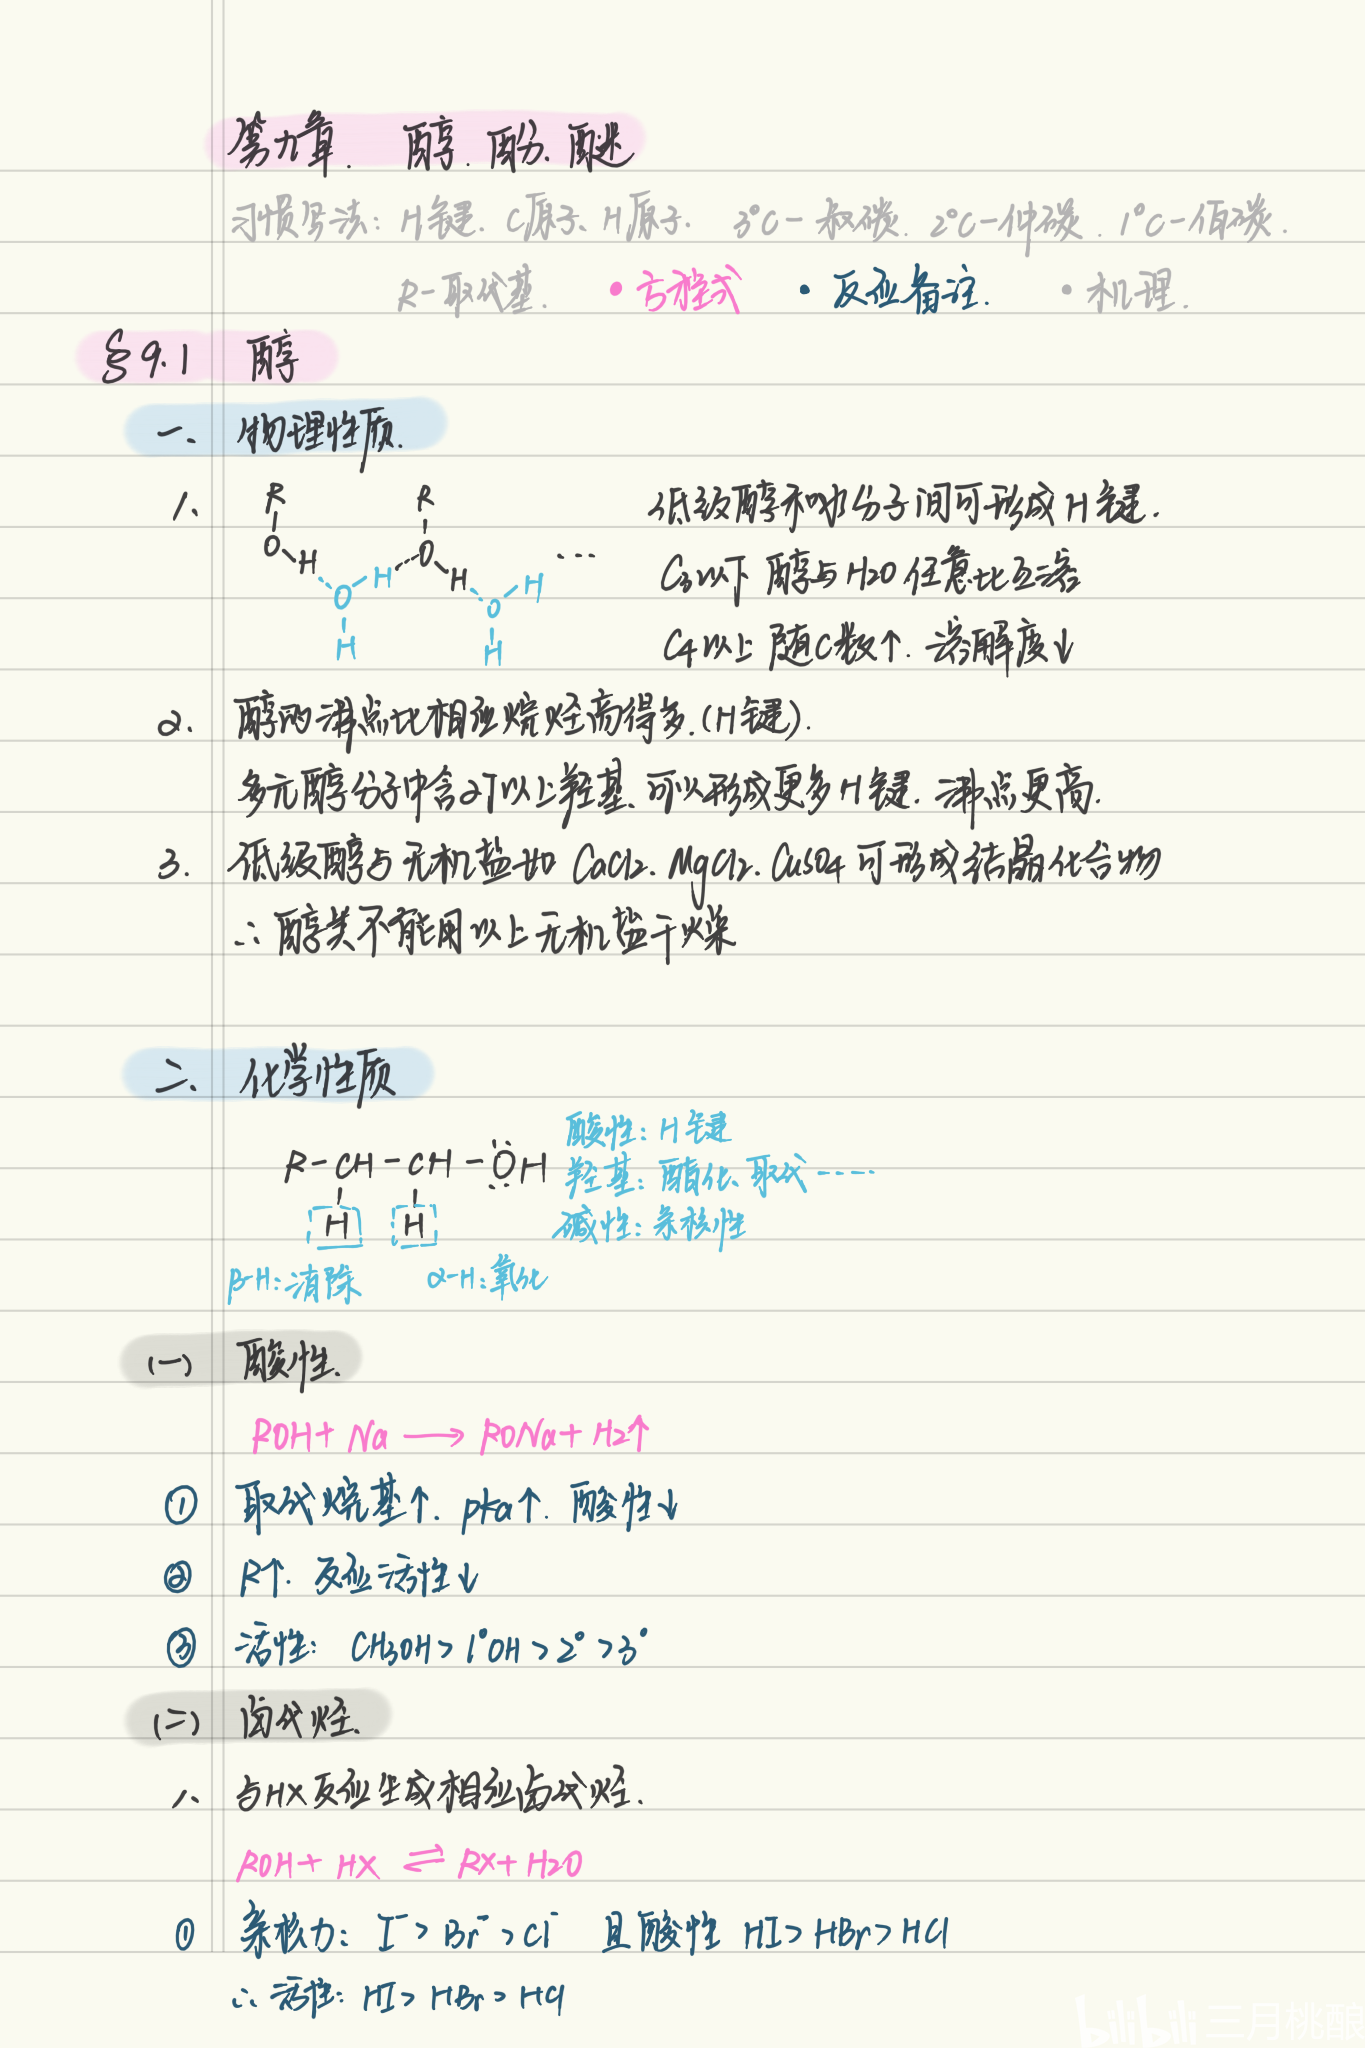 第九章. 醇. 酚、醚
习惯写法: H键. C原子、H原子. 3°C-叔碳. 2°C-仲碳. 1°C-伯碳.
R-取代基. ·方程式 ·反应备注. ·机理.
§9.1 醇
一、物理性质.
1、 低级醇和水分子间可形成H键.
R R
O H O H …
O H O H
H H
C3以下 醇与H2O任意比互溶
C4以上 随C数↑. 溶解度↓
2. 醇的沸点比相应烷烃高得多.(H键).
多元醇分子中含2个以上羟基、可以形成更多H键. 沸点更高.
3. 低级醇与无机盐如 CaCl2. MgCl2. CuSO4 可形成结晶化合物
∴ 醇类不能用以上无机盐干燥
二、化学性质
酸性: H键
R-CH-CH-ÖH
羟基: 酯化、取代……
H H
碱性: 亲核性
β-H: 消除 α-H: 氧化
(一) 酸性.
ROH+ Na ⟶ RONa+ H2↑
① 取代烷基↑. pka↑. 酸性↓
② R↑. 反应活性↓
③ 活性: CH3OH>1°OH>2°>3°
(二) 卤代烃.
1、与HX反应生成相应卤代烃.
ROH+ HX ⇌ RX+H2O
① 亲核力: I⁻>Br⁻>Cl⁻ 且酸性 HI>HBr>HCl
∴ 活性: HI>HBr>HCl
bilibili 三月桃酿